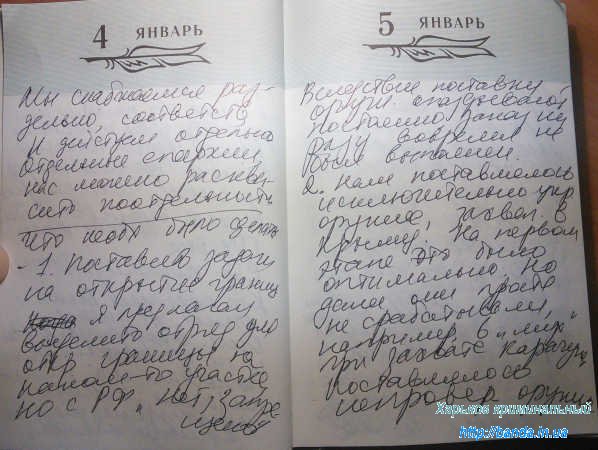 4 ЯНВАРЬ
Мы снабжаемся раз-
дельно, соответств
и действуем отдельно
отдельные
нас можно расква-
сить поотдельности
что необх было сделать
- 1. поставлена задача
на открытие границ
я предлагал
выделить отряд для
откр границы на
каком-то участке
но с РФ "нет", запре
щено
5 ЯНВАРЬ
Вследствие поставки
оружия опаздывают
постоянно
разу вовремя не
был выполнен.
2. нам поставлялось
исключительно укр
оружие, захвач. в
Крыму. На первом
этапе это было
оптимально, но
далее они просто
не срабатывали,
например, в "мик"
при захвате Карачуна
поставлялось
непровер оружие
Харьков криминальный
http://banda.in.ua